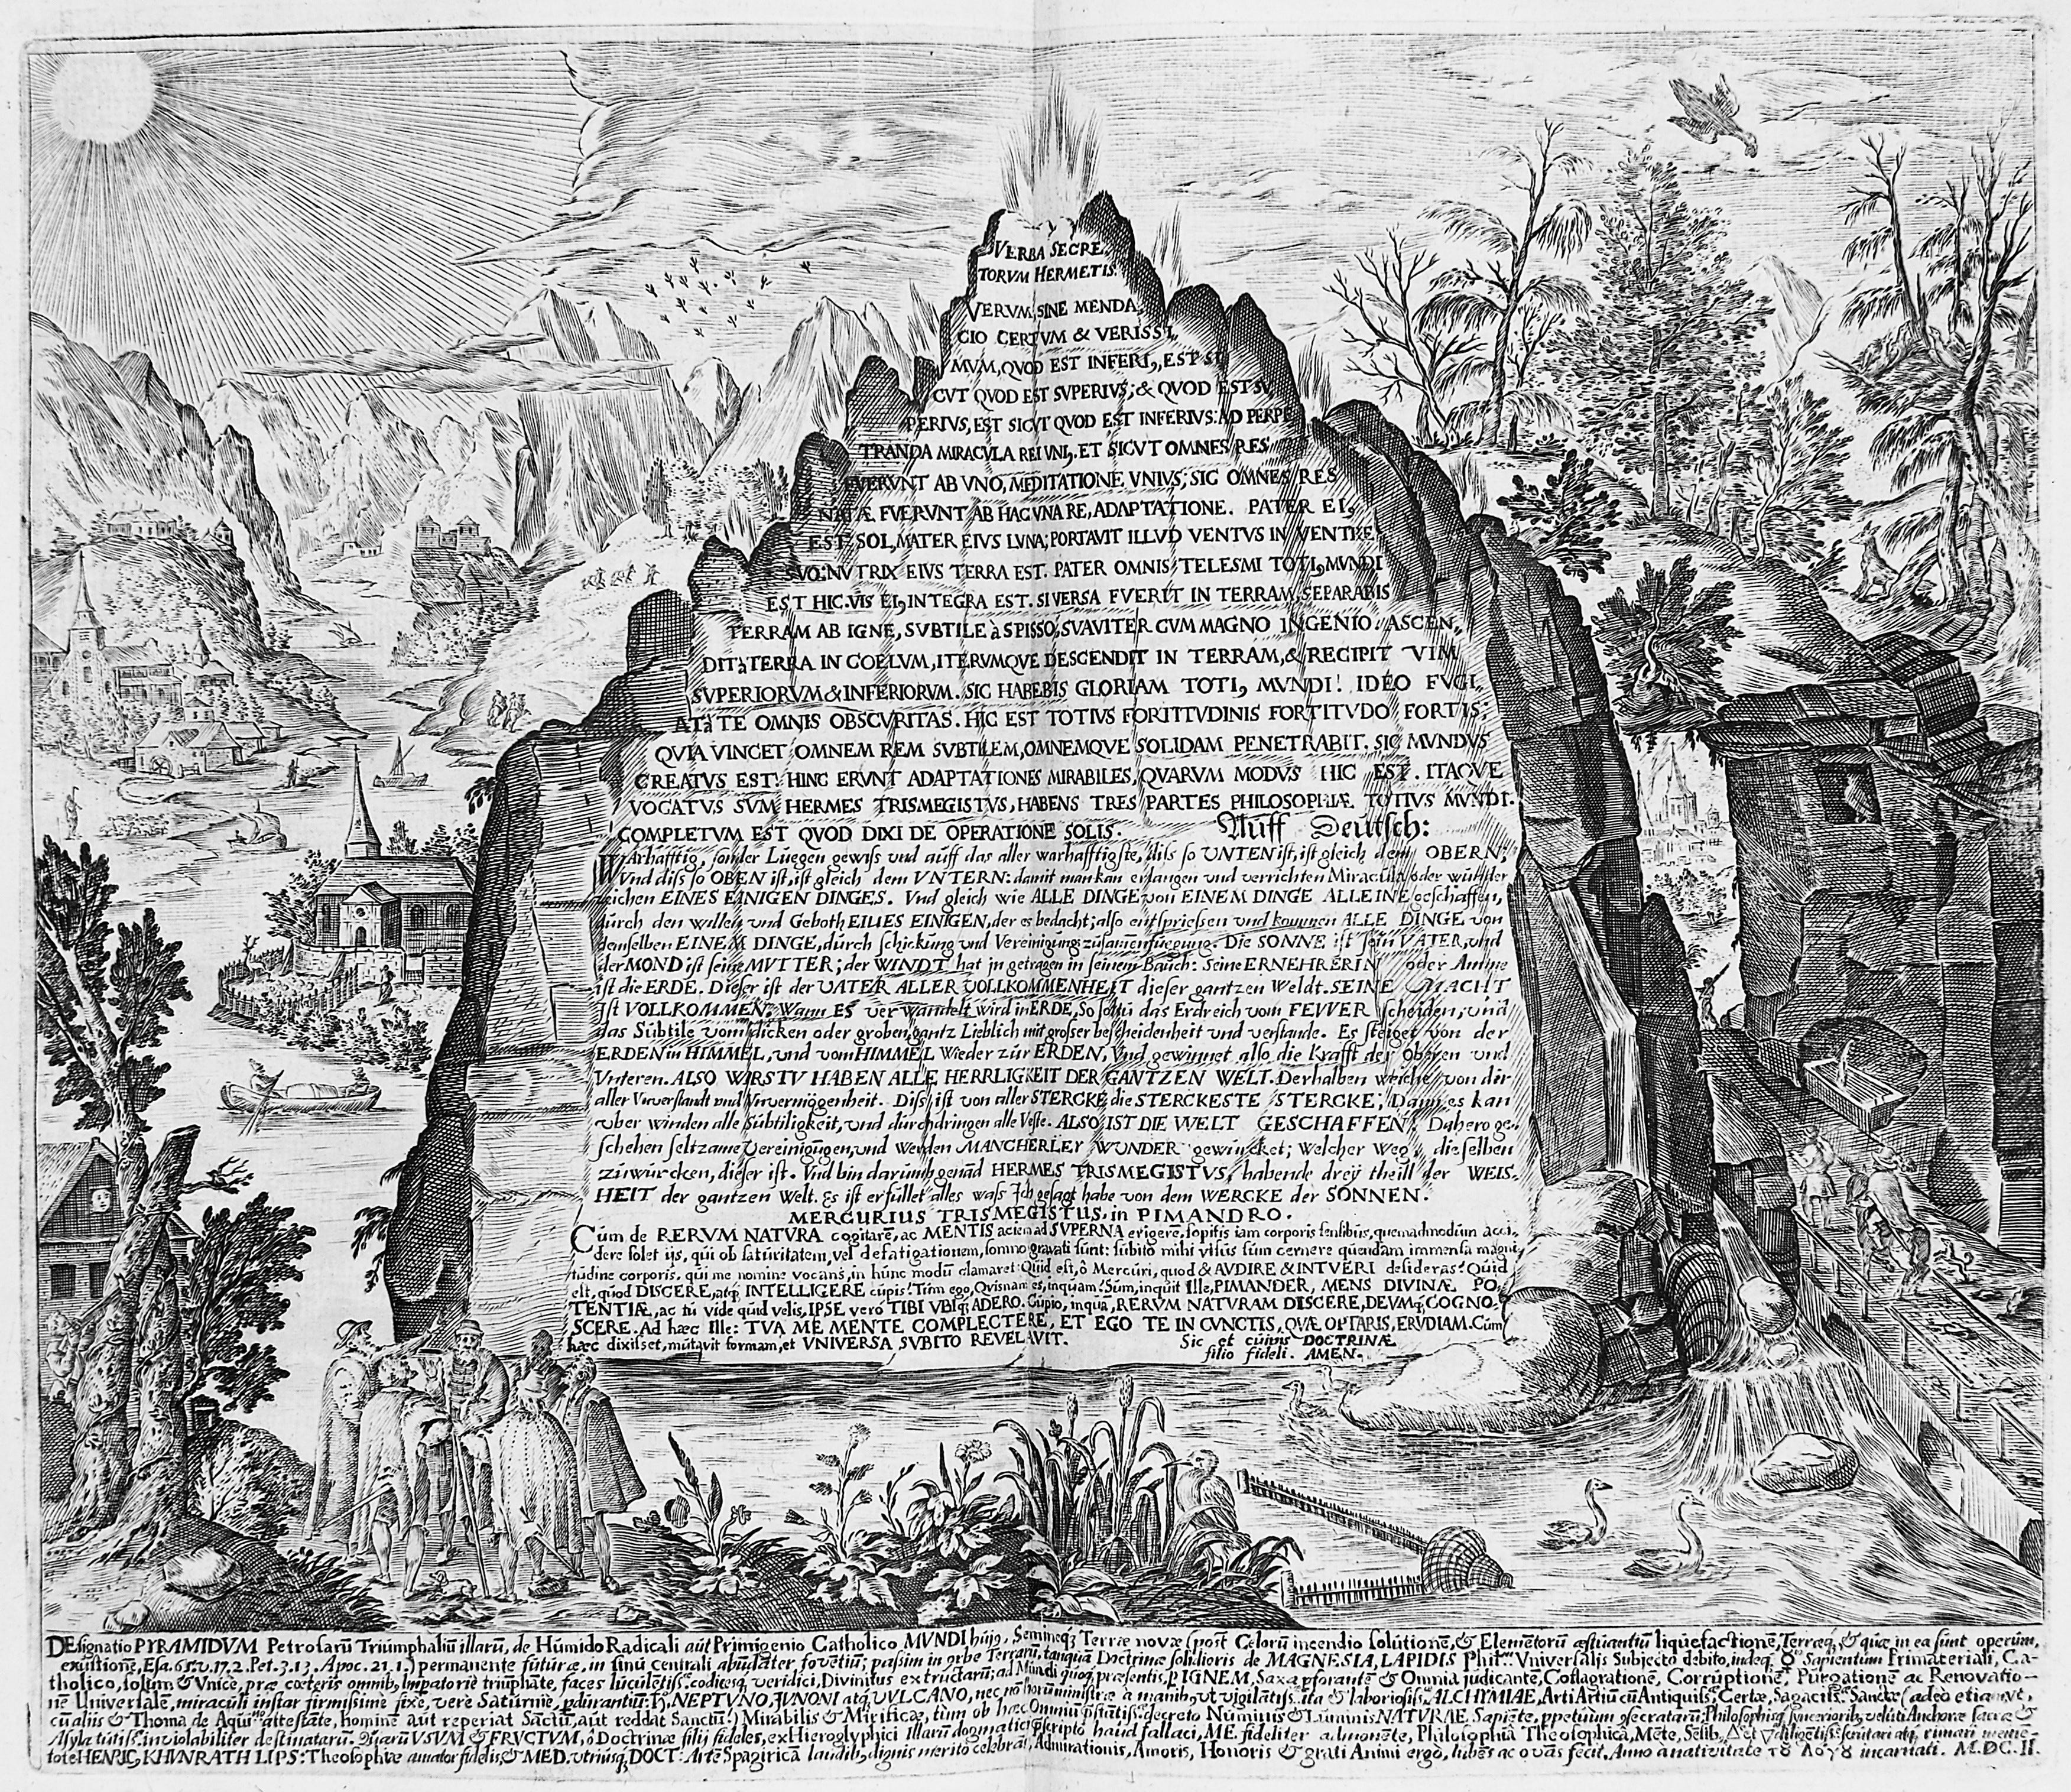 VERBA SECRE,
TORVM HERMETIS.
VERVM, SINE MENDA,
CIO CERTVM & VERISSI,
MVM, QVOD EST INFERI9, EST SI,
CVT QVOD EST SVPERIVS; & QVOD EST SV,
PERIVS, EST SICVT QVOD EST INFERIVS: AD PERPE,
TRANDA MIRACVLA REI VNI9. ET SICVT OMNES RES
FVERVNT AB VNO, MEDITATIONE VNIVS; SIC OMNES RES
NATÆ FVERVNT AB HAC VNA RE, ADAPTATIONE. PATER EI9
EST SOL, MATER EIVS LVNA; PORTAVIT ILLVD VENTVS IN VENTRE
SVO: NVTRIX EIVS TERRA EST. PATER OMNIS TELESMI TOTI9 MVNDI
EST HIC. VIS EI9 INTEGRA EST. SI VERSA FVERIT IN TERRAM, SEPARABIS
TERRAM AB IGNE, SVBTILE à SPISSO, SVAVITER CVM MAGNO INGENIO. ASCEN,
DIT à TERRA IN COELVM, ITERVMQVE DESCENDIT IN TERRAM, & RECIPIT VIM
SVPERIORVM & INFERIORVM. SIC HABEBIS GLORIAM TOTI9 MVNDI! IDEO FVGI,
AT à TE OMNIS OBSCVRITAS. HIC EST TOTIVS FORTITVDINIS FORTITVDO FORTIS;
QVIA VINCET OMNEM REM SVBTILEM, OMNEMQVE SOLIDAM PENETRABIT. SIC MVNDVS
CREATVS EST. HINC ERVNT ADAPTATIONES MIRABILES, QVARVM MODVS HIC EST. ITAQVE
VOCATVS SVM HERMES TRISMEGISTVS, HABENS TRES PARTES PHILOSOPHIÆ TOTIVS MVNDI.
COMPLETVM EST QVOD DIXI DE OPERATIONE SOLIS. Auff Deutsch:
WArhafftig, sonder Luegen gewiss und auff das aller warhafftigste, diss so UNTEN ist, ist gleich dem OBERN;
Vnd diss so OBEN ist, ist gleich dem VNTERN: damit man kan erlangen und verrichten Miracula oder wunder
zeichen EINES EINIGEN DINGES. Vnd gleich wie ALLE DINGE von EINEM DINGE ALLEINE geschaffen,
durch den willen und Geboth EINES EINIGEN, der es bedacht; also entspriessen und kommen ALLE DINGE von
demselben EINEM DINGE, durch schickung und Vereinigung zusammenfuegung. Die SONNE ist sein VATER, und
der MOND ist seine MVTTER; der WINDT hat jn getragen in seinem Bauch: Seine ERNEHRERIN oder Amme
ist die ERDE. Dieser ist der VATER ALLER VOLLKOMMENHEIT dieser gantzen Weldt. SEINE MACHT
Ist VOLLKOMMEN: Wann ES verwandelt wird in ERDE, So soltu das Erdreich vom FEWER scheiden; und
das Subtile vom dicken oder groben, gantz Lieblich mit grosser bescheidenheit und verstande. Es steiget von der
ERDEN in HIMMEL, und vom HIMMEL Wieder zur ERDEN, Vnd gewinnet also die Krafft der Oberen und
Vnteren. ALSO WIRSTV HABEN ALLE HERRLIGKEIT DER GANTZEN WELT. Derhalben weiche von dir
aller Vnverstandt und Vnvermögenheit. Diss ist von aller STERCKE die STERCKESTE STERCKE; Dann es kan
uber winden alle Subtiligkeit, und durchdringen alle Veste. ALSO IST DIE WELT GESCHAFFEN; Dahero ge,
schehen seltzame Vereinigungen, und werden MANCHERLEY WUNDER gewürcket; Welcher Weg, dieselben
zuwürcken, dieser ist. Vnd bin darumb genad HERMES TRISMEGISTVS, habende drey theill der WEIS-
HEIT der gantzen Welt. Es ist erfüllet alles wass Ich gesagt habe von dem WERCKE der SONNEN.
MERCURIUS TRISMEGISTUS, in PIMANDRO.
Cum de RERVM NATVRA cogitarē, ac MENTIS aciem ad SVPERNA erigere, sopitis iam corporis sensibus, quemadmodum acci,
dere solet ijs, qui ob saturitatem, vel defatigationem, somno gravati sunt: subito mihi visus sum cernere quendam immensa magni,
tudine corporis, qui me nomine vocans, in hunc modū clamaret: Quid est, ô Mercuri, quod & AVDIRE & INTVERI desideras? Quid
est, quod DISCERE, atq; INTELLIGERE cupis? Tum ego, Quisnam es, inquam? Sum, inquit Ille, PIMANDER, MENS DIVINÆ PO,
TENTIÆ, ac tu vide quid velis, IPSE vero TIBI VBIQ; ADERO. Cupio, inquā, RERVM NATURAM DISCERE, DEVMQ; COGNO,
SCERE. Ad hæc Ille: TVA ME MENTE COMPLECTERE, ET EGO TE IN CVNCTIS, QVÆ OPTARIS, ERVDIAM. Cum
hæc dixisset, mutavit formam, et VNIVERSA SVBITO REVELAVIT.
Sic et cuivis DOCTRINÆ
filio fideli. AMEN.
DEsignatio PYRAMIDVM Petrosarū Triumphaliū illarū, de Humido Radicali aut Primigenio Catholico MVNDI huj9, Semineq; Terræ novæ (post Celorū incendio solutionē, & Elemētorū æstuantiū liquefactionē, Terræq;, & quæ in ea sunt operum,
exustionē, Esa. 65. v. 17. 2. Pet. 3. 13. Apoc. 21. 1.) permanente futuræ, in sinu centrali abūdāter fovetiū; passim in orbe Terrarū, tanquā Doctrinæ solidioris de MAGNESIA, LAPIDIS Phil. Universalis Subjecto debito, indeq; Sapientum Primateriali, Ca-
tholico, solum & Unice, præ cæteris omnib9, Impatorie triūphāte, faces luculētiss. codicesq; veridici, Divinitus extructarū; ad Mundi quoq; præsentis, p IGNEM, Saxa pforantē & Omnia judicantē, Coflagrationē, Corruptionē, Purgationē ac Renovatio-
nē Universalē, miraculi instar firmissime fixe, vere Saturnie, pdurantiū: NEPTVNO, JVNONI atq; VULCANO, nec nō horū ministris a manib9, ut vigilātiss. ita & laboriosiss. ALCHYMIAE, Arti Artiū cū Antiquiss; Certæ, Sagaciss. Sanctæ (adeo etiam ut,
cū aliis & Thoma de Aquino attestāte, hominē aut reperiat Sanctū, aut reddat Sanctū.) Mirabilis & Mirificæ, tum ob hæc Omniū decreto Numinis & Luminis NATVRAE, Sapiēte, ppetuum Philosophisq; synceriorib9, veluti Anchoræ sacræ &
Asyla tutiss. inviolabiliter destinatarū. Quarū USVM & FRVCTVM, ô Doctrinæ filij fideles, ex Hieroglyphici Illarū dogmatici pscripto haud fallaci, ME fideliter admonēte, Philosophiā Theosophicā, Mēte, scrutari atq; rimari memē-
tote HENRIC9 KHVNRATH LIPS: Theosophiæ amator fidelis, & MED. utriusq; DOCT: Arte Spagirica laudib9 dignis merito celebrāt, Admirationis, Amoris, Honoris & grati Animi ergo, lubēs ac ovās fecit. Anno a nativitate τ8 Λογ8 incarnati. M.DC.II.